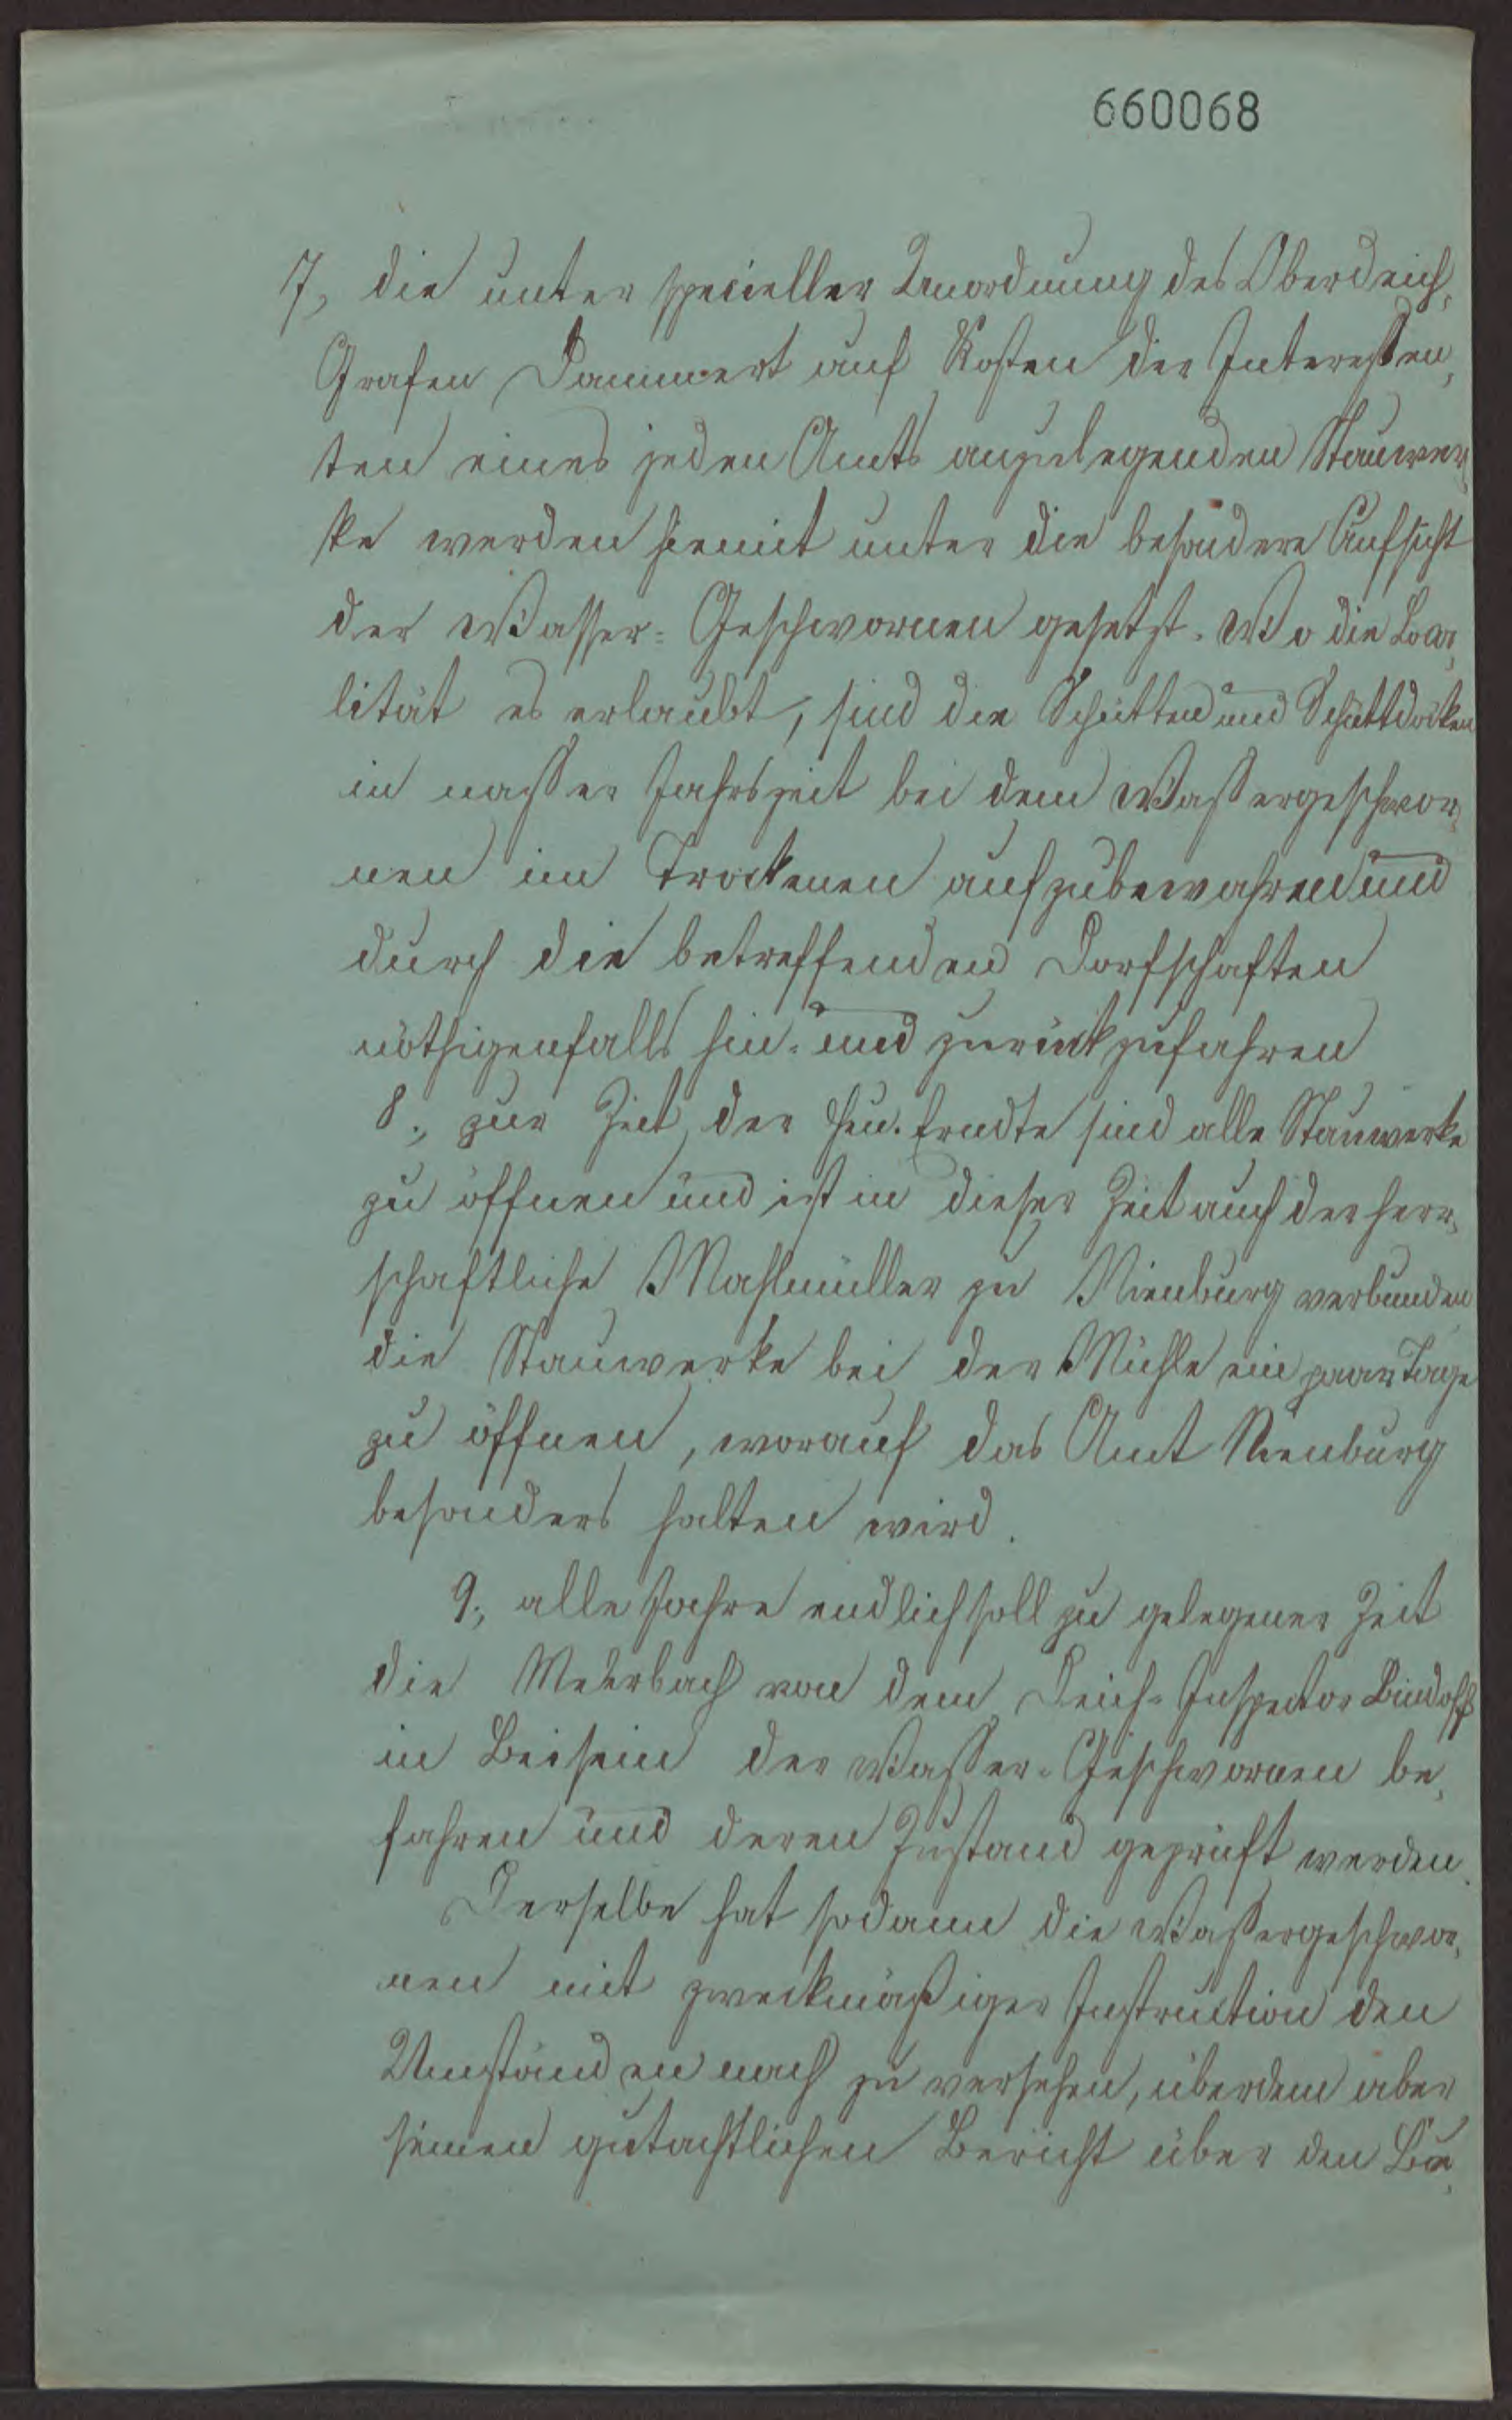 660068
7, die unter specieller Anordnung des Oberdeich„
Grafen Dammert auf Kosten der Interessen„
ten eines jeden Amts anzulegenden Stauwer„
ke werden hiemit unter die besondere Aufsicht
der Wasser= Geschwornen gesetzt. Wo die Loca„
lität es erlaubt, sind die Schütten und Schüttdocken
in nasser Jahrszeit bei dem Wassergeschwor„
nen im Trockenen aufzubewahren und
durch die betreffenden Dorfschaften
nöthigenfalls hin= und zurückzufahren
8., zur Zeit der Heu. Erndte sind alle Stauwerke
zu öffnen und ist in dieser Zeit auch der herr„
schaftliche Mahlmüller zu Nienburg verbunden
die Stauwerke bei der Mühle ein paar Tage
zu öffnen, worauf das Amt Nienburg
besonders halten wird.
9., alle Jahre endlich soll zu gelegener Zeit
die Mehrbach von dem Deich= Inspector
in Beisein der Wasser= Geschwornen be„
fahren und deren Zustand geprüft werden.
Derselbe hat sodann die Wassergeschwor„
nen mit zweckmäßiger Instruction den
Umständen nach zu versehen, überdem aber
seinen gutachtlichen Bericht über den